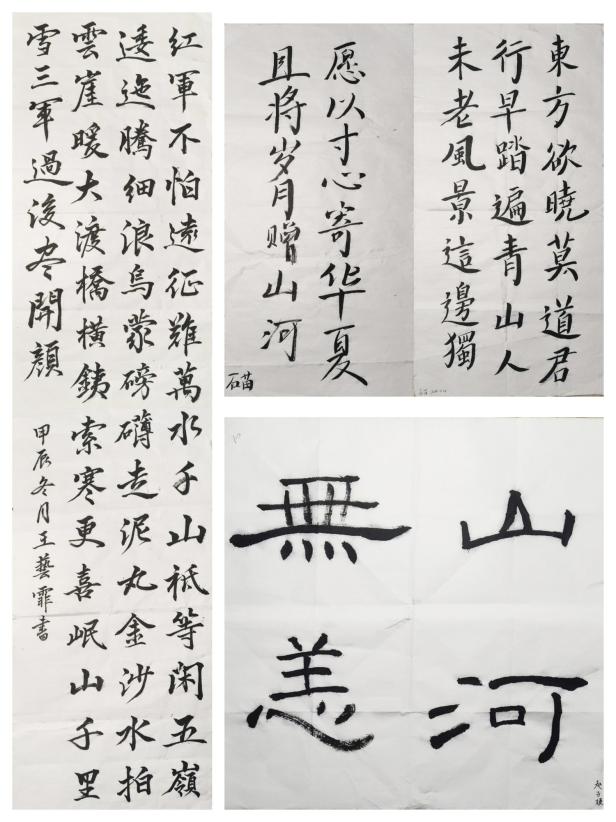 红軍不怕遠征難萬水千山祗等閑五嶺
逶迤騰細浪烏蒙磅礴走泥丸金沙水拍
雲崖暖大渡橋橫銕索寒更喜岷山千里
雪三軍過後尽開顔
甲辰冬月王藝霏書
東方欲曉莫道君
行早踏遍青山人
未老風景這邊獨
愿以寸心寄华夏
且将岁月赠山河
山河
無恙